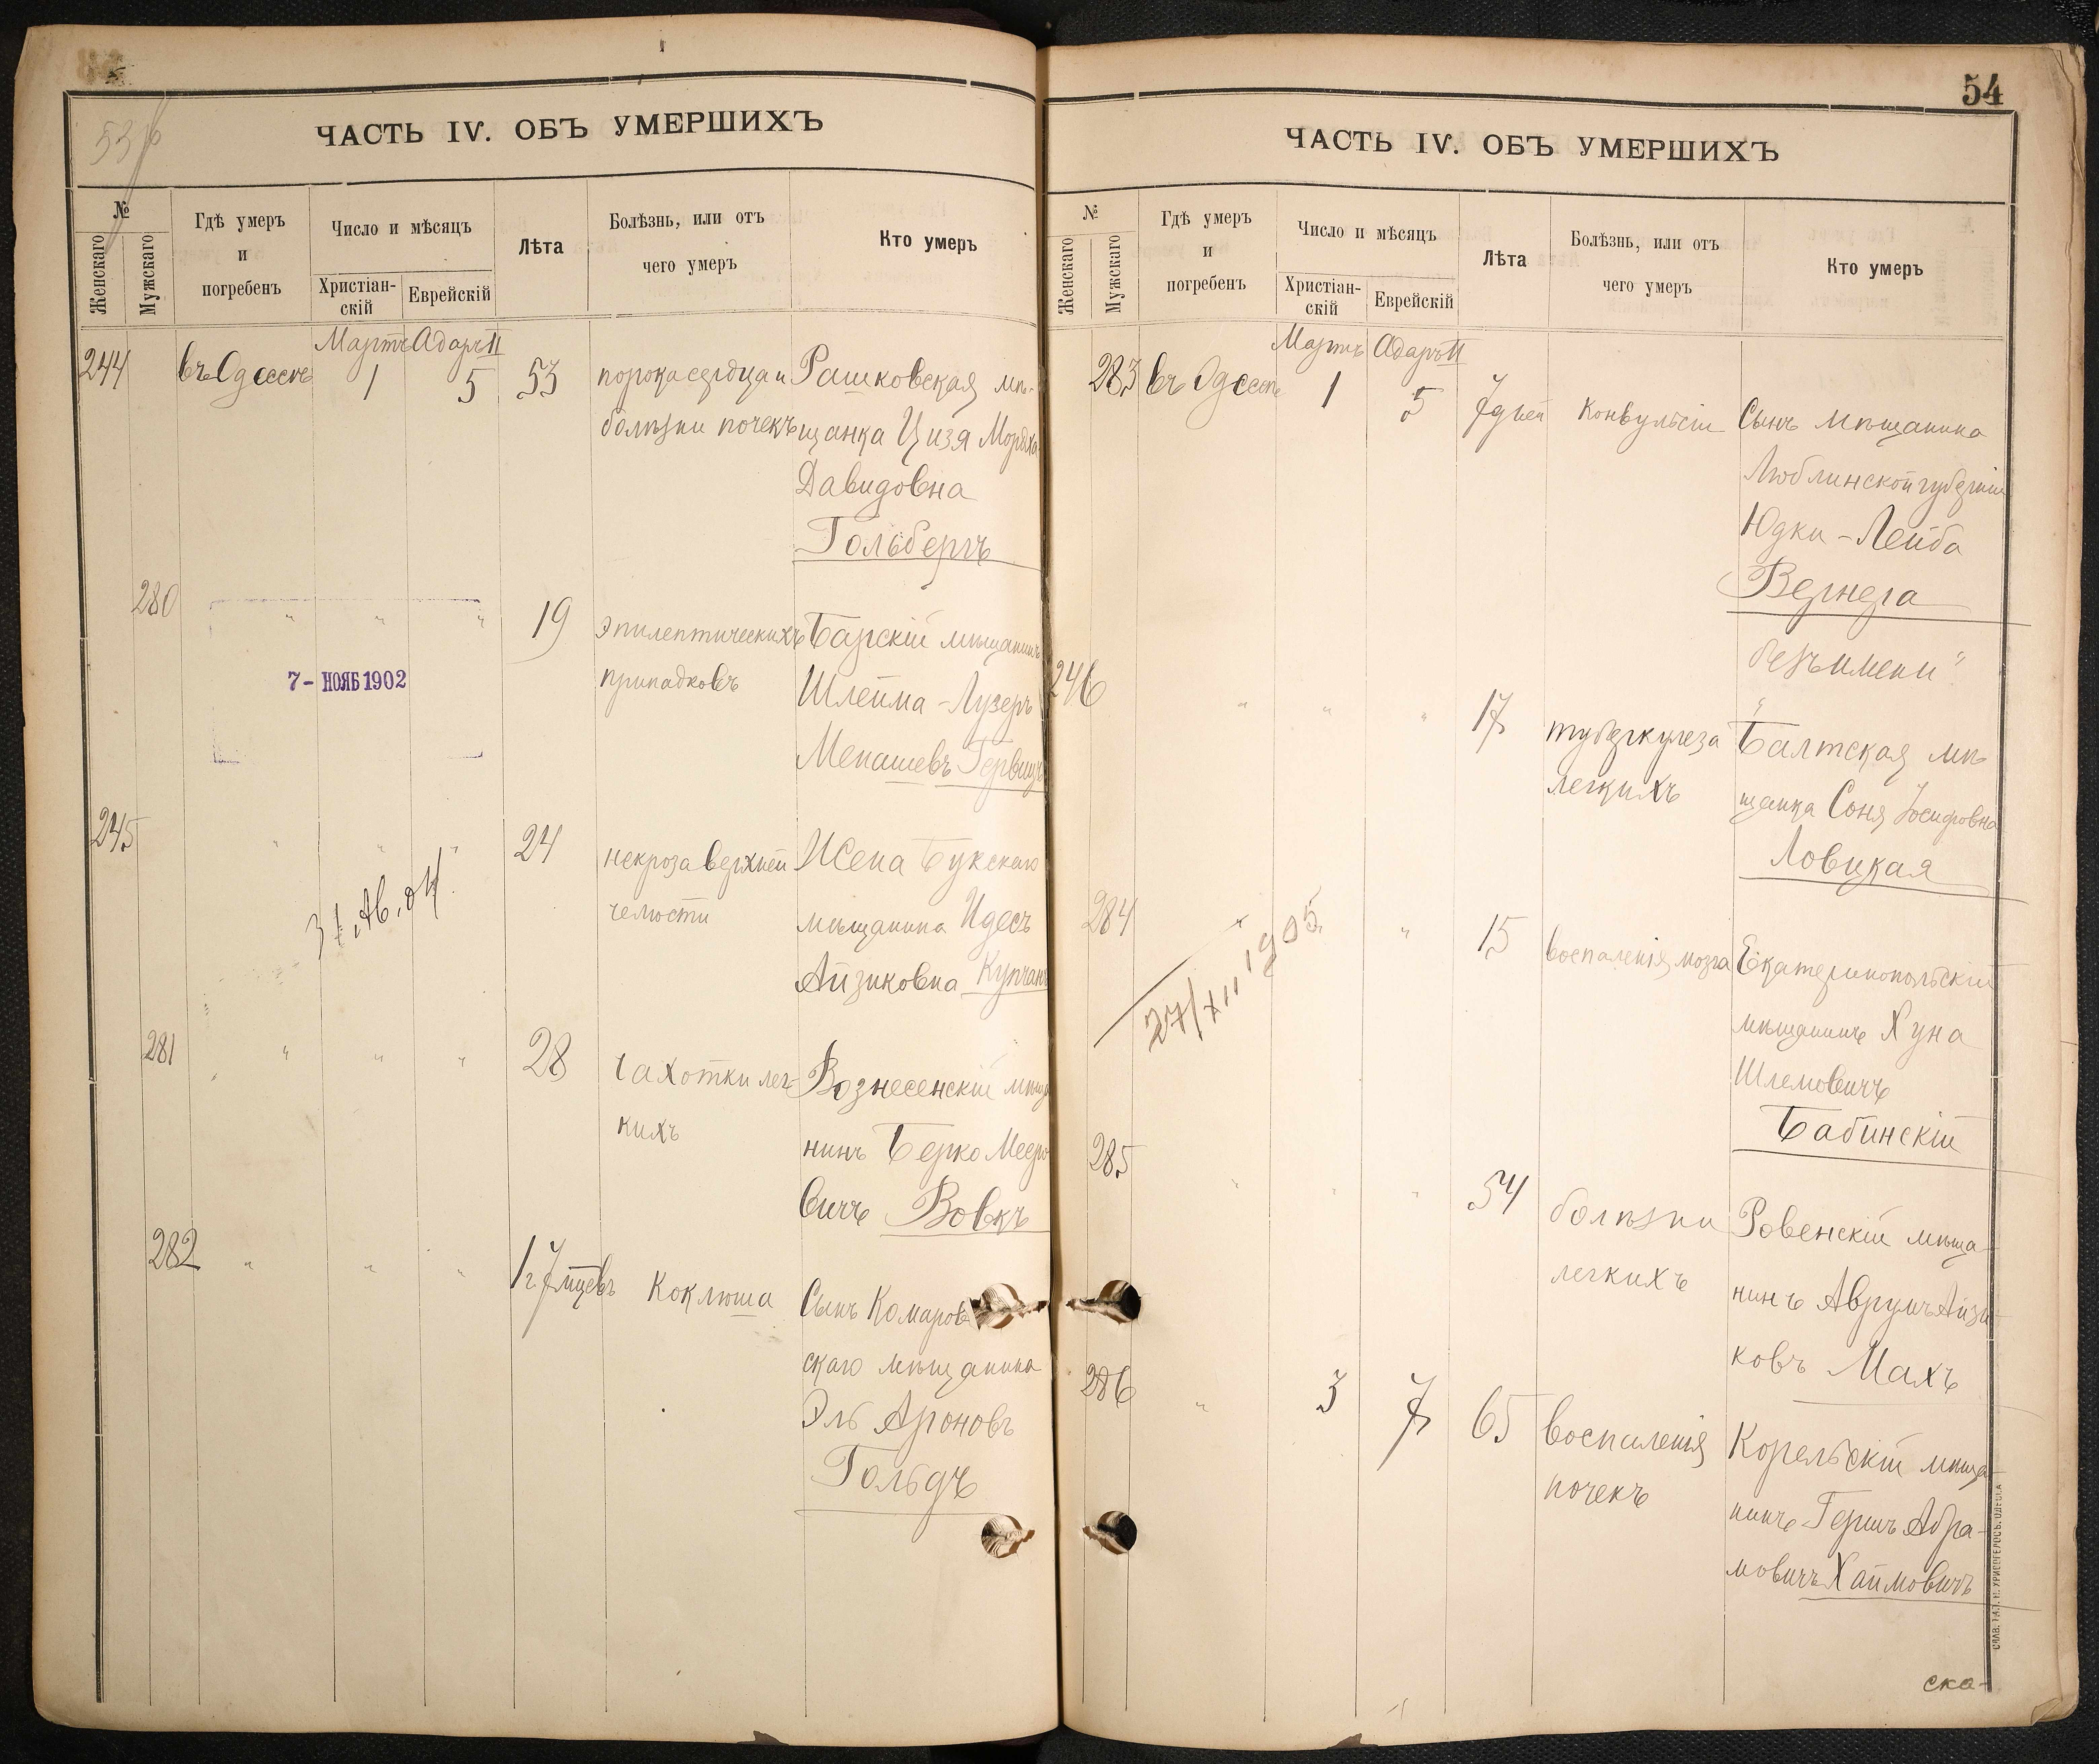 53 б
ЧАСТЬ IV. ОБЪ УМЕРШИХЪ
№
Женскаго
Мужскаго
Гдѣ умеръ
и
погребенъ
Число и мѣсяцъ
Христіан-
скій
Еврейскій
Лѣта
Болѣзнь, или отъ
чего умеръ
Кто умеръ
Мартъ Адаръ II
244 въ Одессѣ 1 5 53 порока сердца и Рашковская мѣ-
болѣзни почекъ щанка Цизя Мордха
Давидовна
Гольбергъ
280 " " " 19 эпилептическихъ Барскій мѣщанинъ
припадковъ Шлейма-Лузеръ
Менашевъ Гервицъ
7- НОЯБ 1902
245 " " " 24 некроза верхней Жена Букскаго
челюсти мѣщанина Идесъ
Айзиковна Купчанъ
31. Ав. 04.
281 " " " 28 чахотки лег- Вознесенскій мѣща
кихъ нинъ Берко Мееро
вичъ Вовкъ
282 " " " 1 г 7 мцевъ Коклюша Сынъ Комаров
скаго мѣщанина
Эль Ароновъ
Гольдъ
54
ЧАСТЬ IV. ОБЪ УМЕРШИХЪ
№
Женскаго
Мужскаго
Гдѣ умеръ
и
погребенъ
Число и мѣсяцъ
Христіан-
скій
Еврейскій
Лѣта
Болѣзнь, или отъ
чего умеръ
Кто умеръ
Мартъ Адаръ II
283 въ Одессѣ 1 5 7 дней Конвульсіи Сынъ мѣщанина
Люблинской губерніи
Юдки-Лейба
Вернера
"безъ имени"
246 " " " 17 туберкулеза Балтская мѣ
легкихъ щанка Соня Іосифовна
Ловицкая
284 " " 15 воспаленія мозга Екатеринопольскій
мѣщанинъ Хуна
Шлемовичъ
Бабинскій
27/XII 1905
285 " " " 54 болѣзни Ровенскій мѣща-
легкихъ нинъ Аврумъ Айзи-
ковъ Махъ
286 " 3 7 65 воспаленія Корельскій мѣща-
почекъ нинъ Гершъ Абра-
мовичъ Хаимовичъ
СЛАВ. ТИП. Н. ХРИСОГЕЛОСЪ. ОДЕССА
ска-